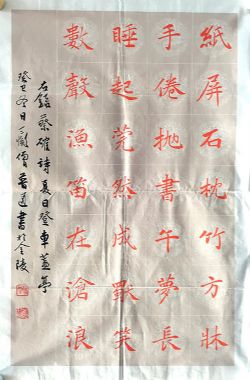 紙屏石枕竹方牀
手倦抛書午夢長
睡起莞然成獨笑
數聲漁笛在滄浪
右錄蔡確詩夏日登車蓋亭
癸巳冬日蘭僧書於金陵